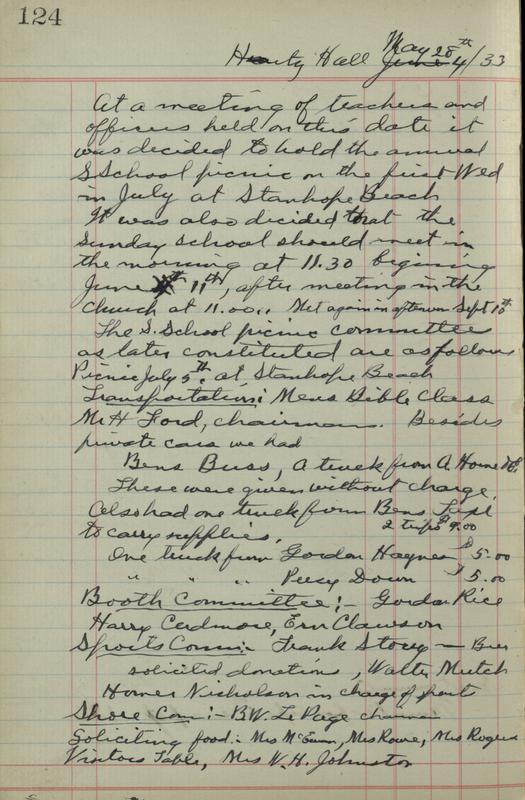 124
Hall May 28th
June 4/33
At a meeting of teachers and
officers held on this date it
was decided to hold the annual
S School picnic on the first Wed
in July at Stanhope Beach
It was also decided that the
Sunday School should meet in
the morning at 11.30 begining
June 11th, after meeting in the
Church at 11.00. Met again in afternoon Sept 10th
The S. School picnic committee
as later constituted are as follows
Picnic July 5th at Stanhope Beach
Transportation: Mens Bible Class
Mr H Ford, chairman. Besides
private cars we had
Bens Buss, A truck from A. Horne
These were given without charge.
Also had one truck from Bens
to carry supplies, 2 trips $9.00
One truck from Gordon Haynes $5.00
" " " Percy Down $5.00
Booth Committee:- Gordon Rice
Harry Cudmore, Ern Clawson
Sports Comm: Frank Storey —
solicited donations, Walter Mutch
Homer Nicholson in charge of sports
Shore Com:- B.W. Le Page chairman
Soliciting food: Mrs McEwen, Mrs Rowe, Mrs Rogers
Visitors Table, Mrs W. H. Johnston